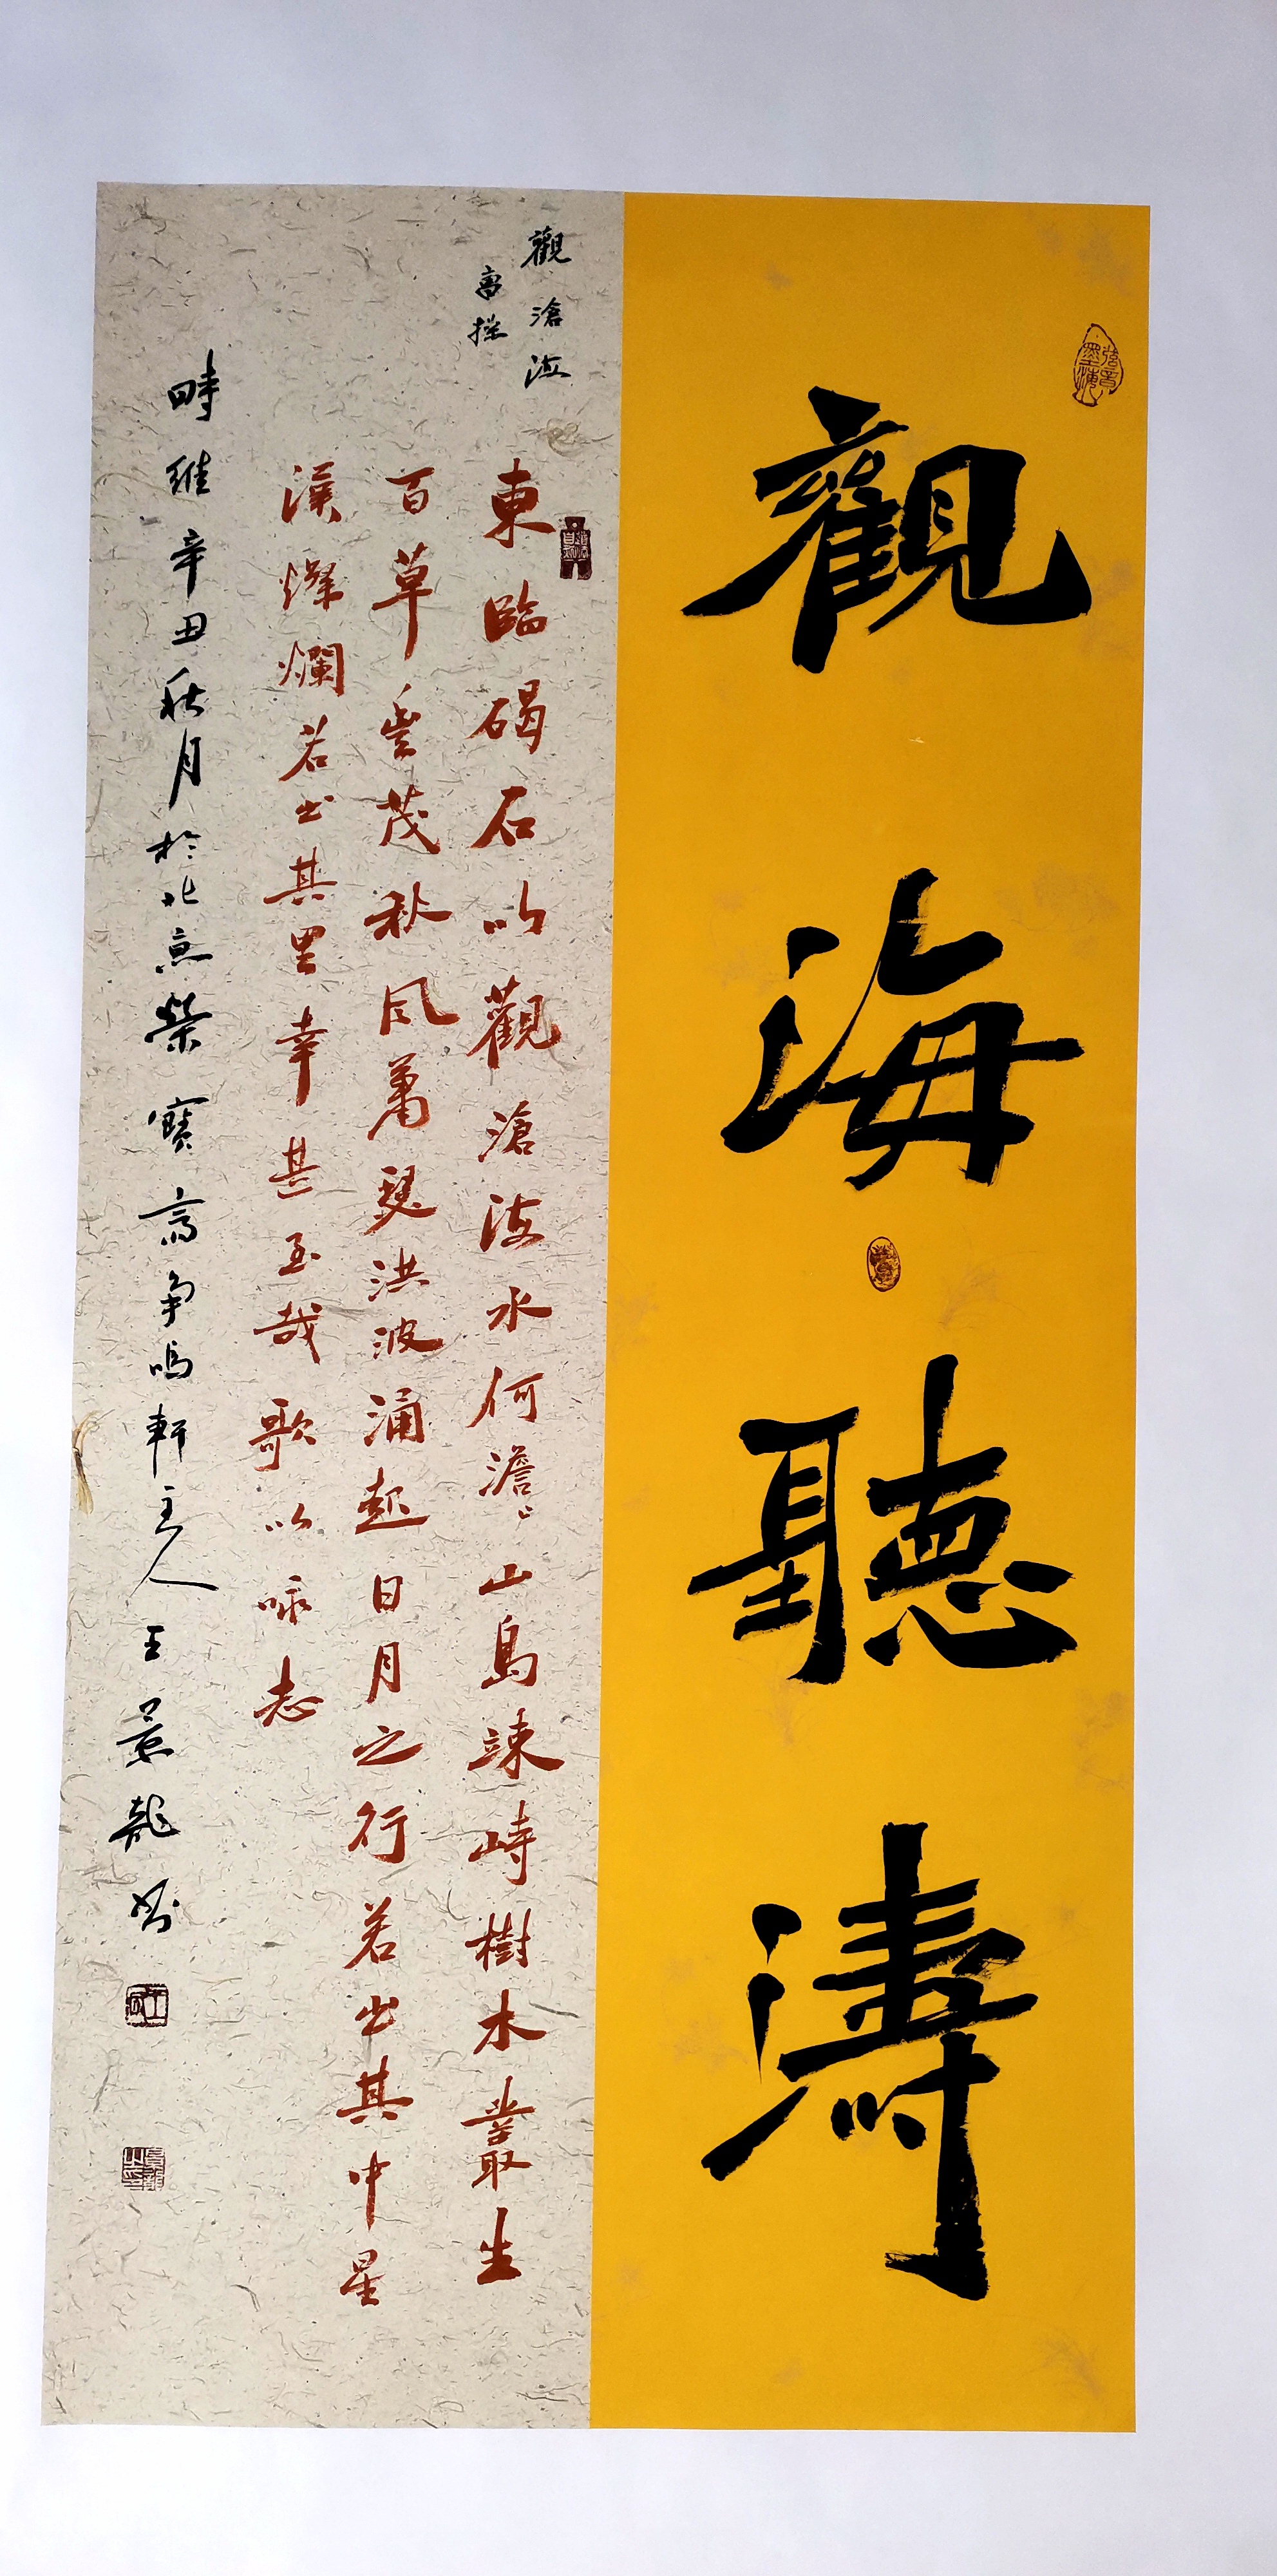 觀海聽濤
觀滄海
曹操
東臨碣石以觀滄海水何澹〻山島竦峙樹木叢生
百草豐茂秋風蕭瑟洪波涌起日月之行若出其中星
漢燦爛若出其里幸甚至哉歌以咏志
時維辛丑秋月於北京榮寶齋爭鳴軒主人王景龍書